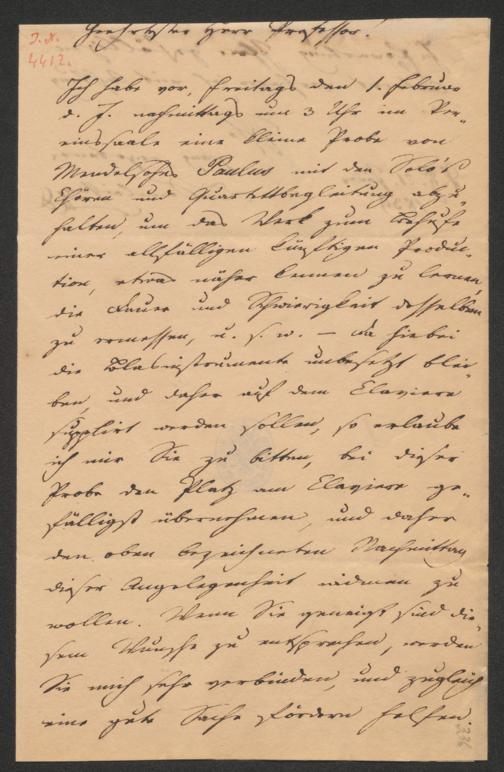 J. N.
4412.
Geehrtester Herr Professor!
Ich habe vor, Freitags den 1. Februar
d. J. nachmittags um 3 Uhr im Ver-
einssaale eine kleine Probe von
Mendelsohns Paulus mit den Solo's
Chören und Quartettbegleitung abzu-
halten, um das Werk zum Behufe
einer allfälligen künftigen Produc-
tion, etwas näher kennen zu lernen,
die Dauer und Schwierigkeit desselben
zu ermessen, u. s. w. — Da hiebei
die Blasinstrumente unbesetzt blei-
ben, und daher auf dem Claviere
supplirt werden sollen, so erlaube
ich mir Sie zu bitten, bei dieser
Probe den Platz am Claviere ge-
fälligst übernehmen, und daher
den oben bezeichneten Nachmittag
dieser Angelegenheit widmen zu
wollen. Wenn Sie geneigt sind die-
sem Wunsche zu entsprechen, werden
Sie mich sehr verbinden, und zugleich
eine gute Sache fördern helfen.